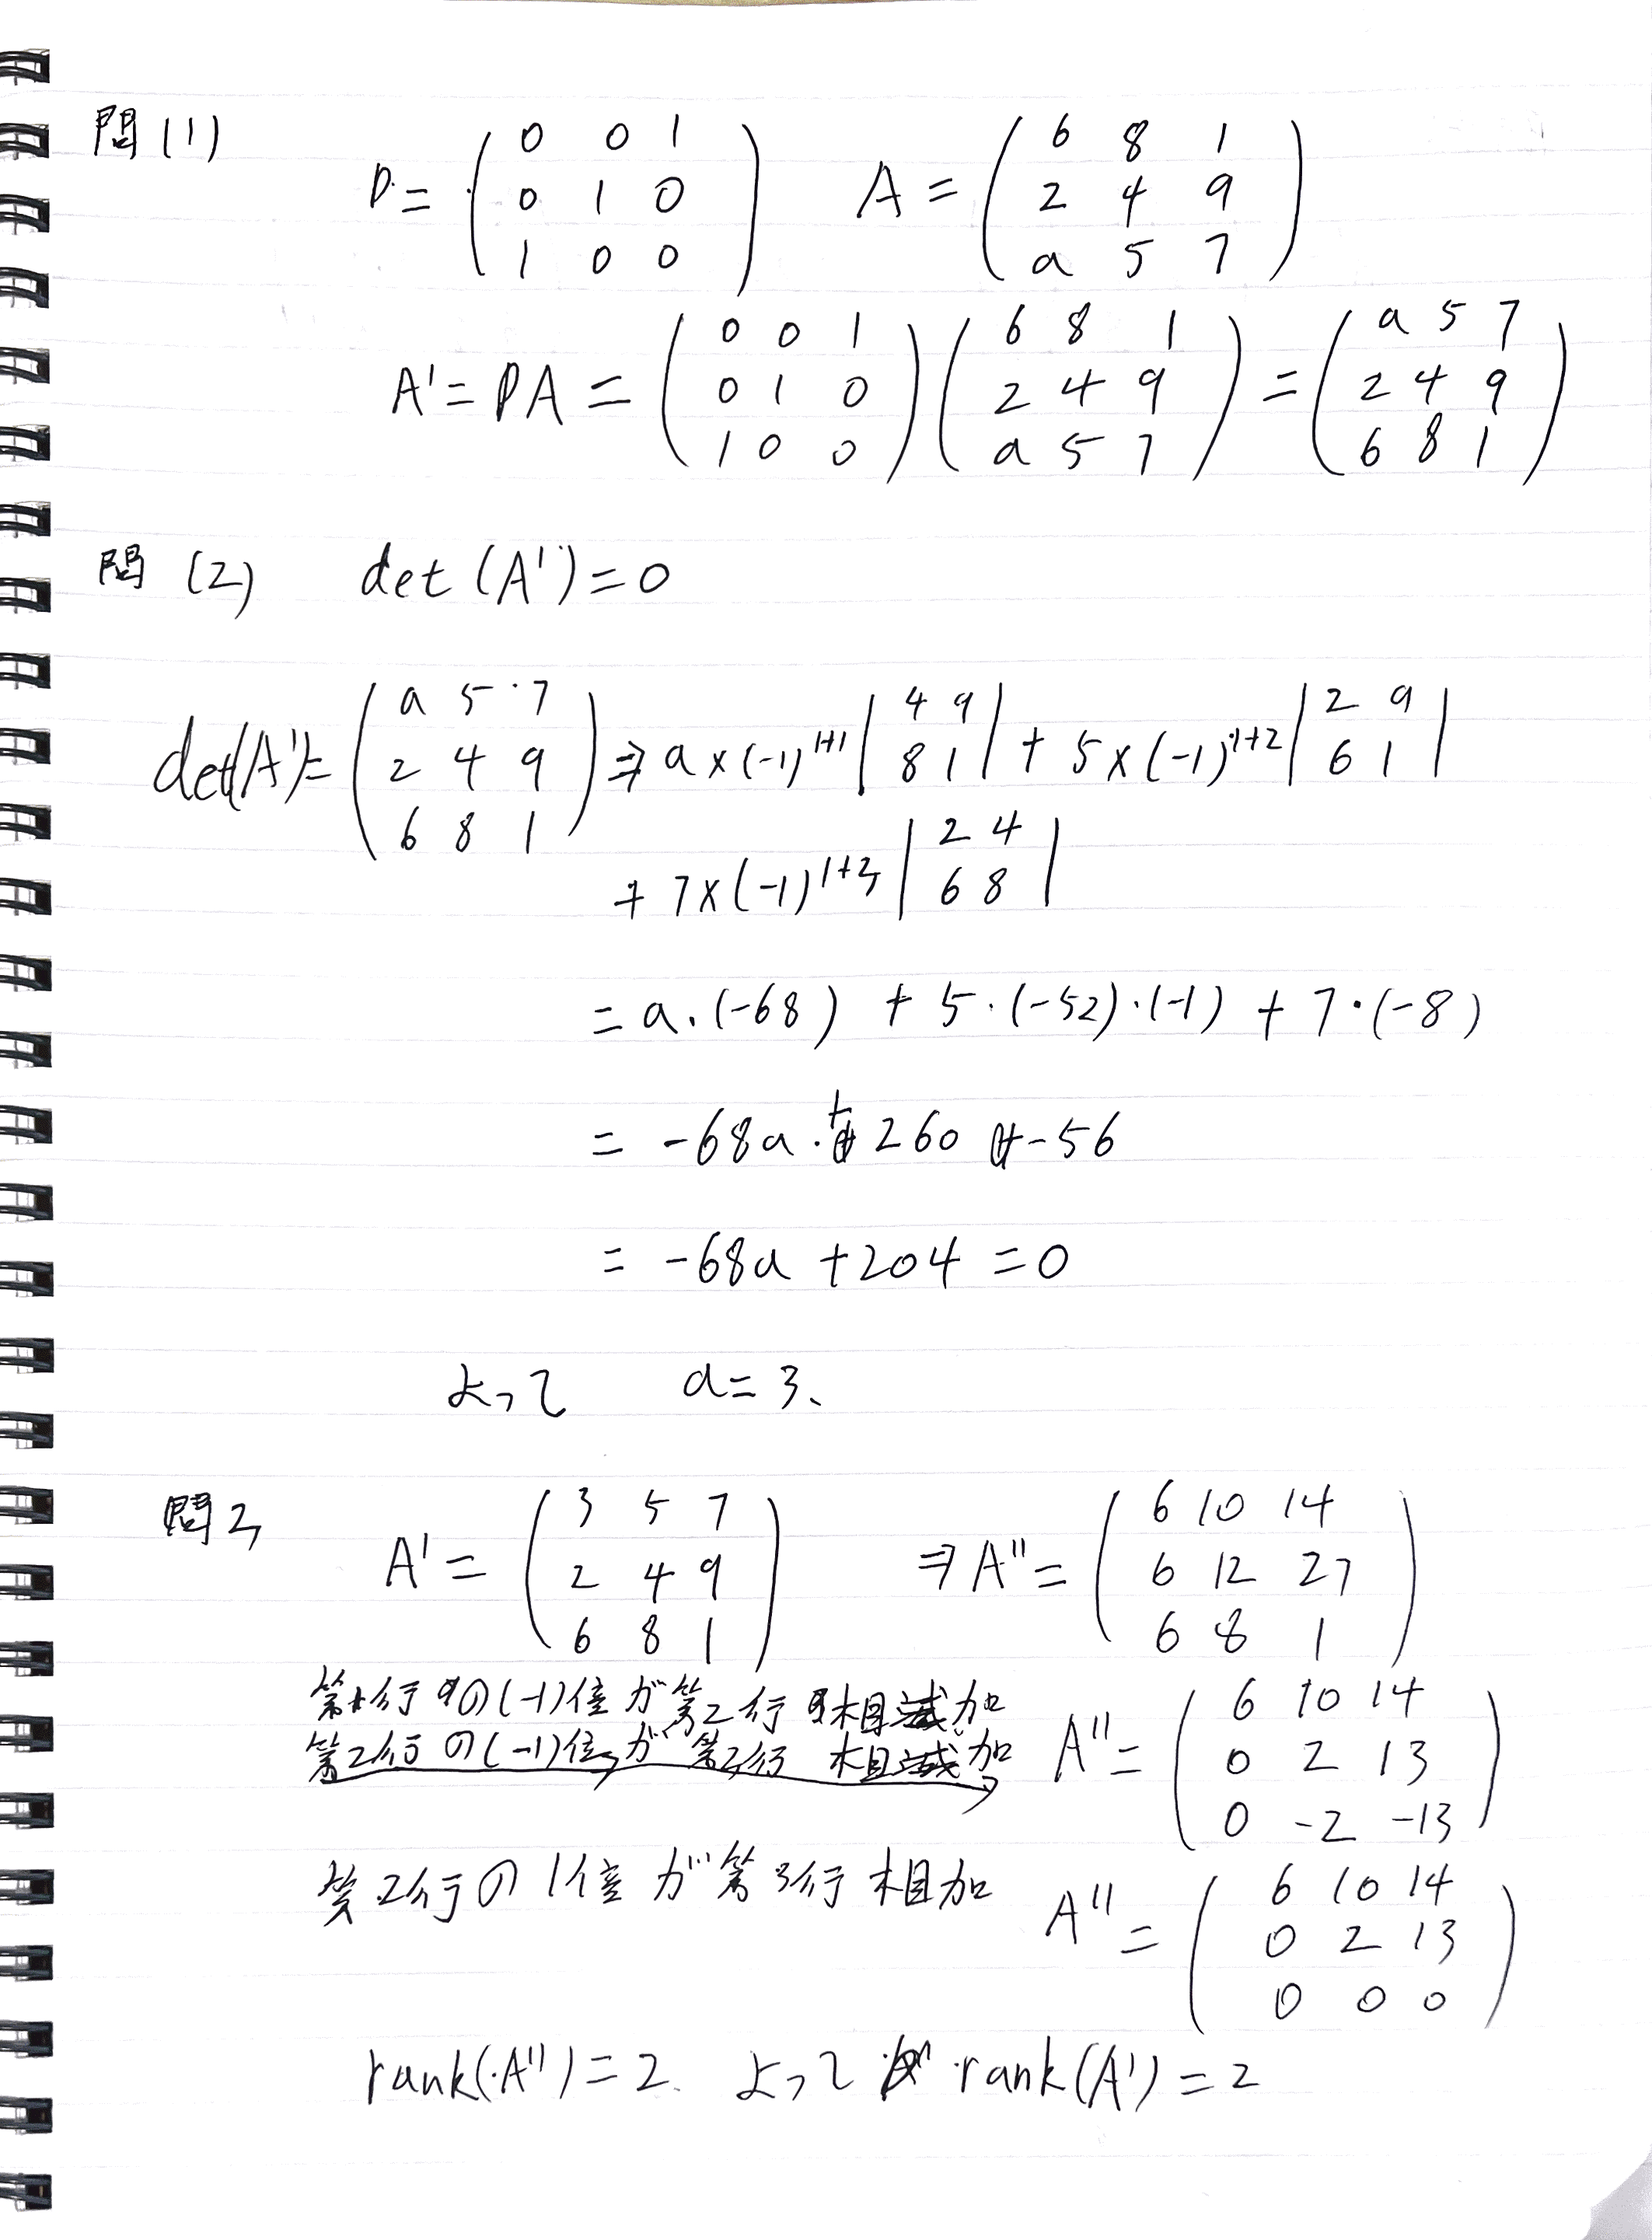 問(1) P = ( 0 0 1 / 0 1 0 / 1 0 0 ) A = ( 6 8 1 / 2 4 9 / a 5 7 )
A' = PA = ( 0 0 1 / 0 1 0 / 1 0 0 ) ( 6 8 1 / 2 4 9 / a 5 7 ) = ( a 5 7 / 2 4 9 / 6 8 1 )
問 (2) det (A') = 0
det(A') = ( a 5 7 / 2 4 9 / 6 8 1 ) ⇒ a × (-1)^{1+1} | 4 9 / 8 1 | + 5 × (-1)^{1+2} | 2 9 / 6 1 |
+ 7 × (-1)^{1+3} | 2 4 / 6 8 |
= a・(-68) + 5・(-52)・(-1) + 7・(-8)
= -68a + 260 - 56
= -68a + 204 = 0
よって a = 3、
問3 A' = ( 3 5 7 / 2 4 9 / 6 8 1 ) ⇒ A'' = ( 6 10 14 / 6 12 27 / 6 8 1 )
第1行の(-1)倍が第2行相加
第2行の(-1)倍が第3行 相加 A'' = ( 6 10 14 / 0 2 13 / 0 -2 -13 )
第2行の1倍が第3行相加 A'' = ( 6 10 14 / 0 2 13 / 0 0 0 )
rank(A'') = 2. よって rank(A') = 2